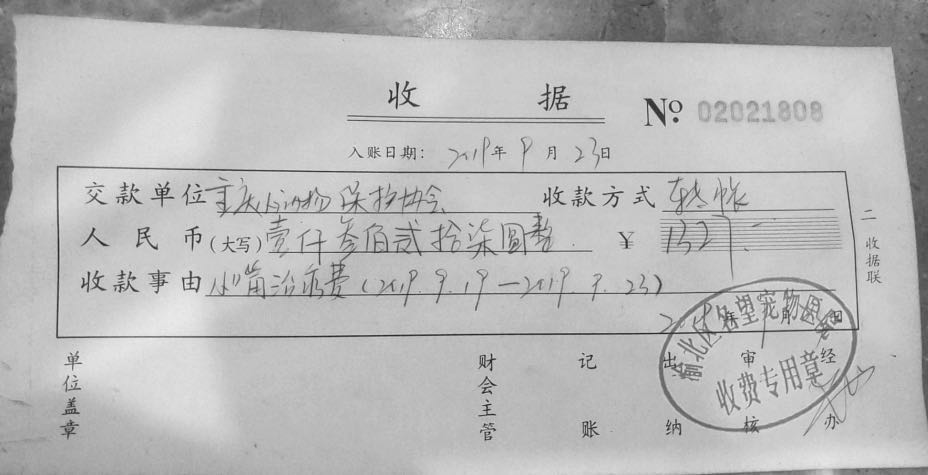 收 据
№ 02021808
入账日期: 2019年9月23日
交款单位 重庆小动物保护协会 收款方式 转帐
人民币(大写) 壹仟叁佰贰拾柒圆整 ¥ 1327.-
收款事由 治疗费(2019.9.19—2019.9.23)
年 月 日
渝北区 望宠物医
收费专用章
二 收据联
单位盖章 财会主管 记账 出纳 审核 经办